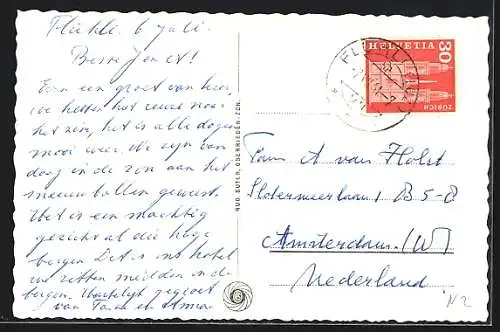 Flühli. 6 Juli.
Beste Jo en A!
Even een groet van hier,
we hebben het reuze naar
het zin, het is alle dagen
mooi weer. We zijn van
daag in de zon aan het
sneeuwballen geweest.
Het is een machtig
gezicht al die hoge
bergen. Dit is ons hotel
we zitten midden in de
bergen. Hartelijk gegroet
van Tante en Anna
HUG. SUTER, OBERRIEDEN-ZCH.
FLÜHLI (LU)
HELVETIA
30
ZÜRICH
Fam A van Holst
Slotermeerlaan 1 B5-8
Amsterdam. (W)
Nederland
N2